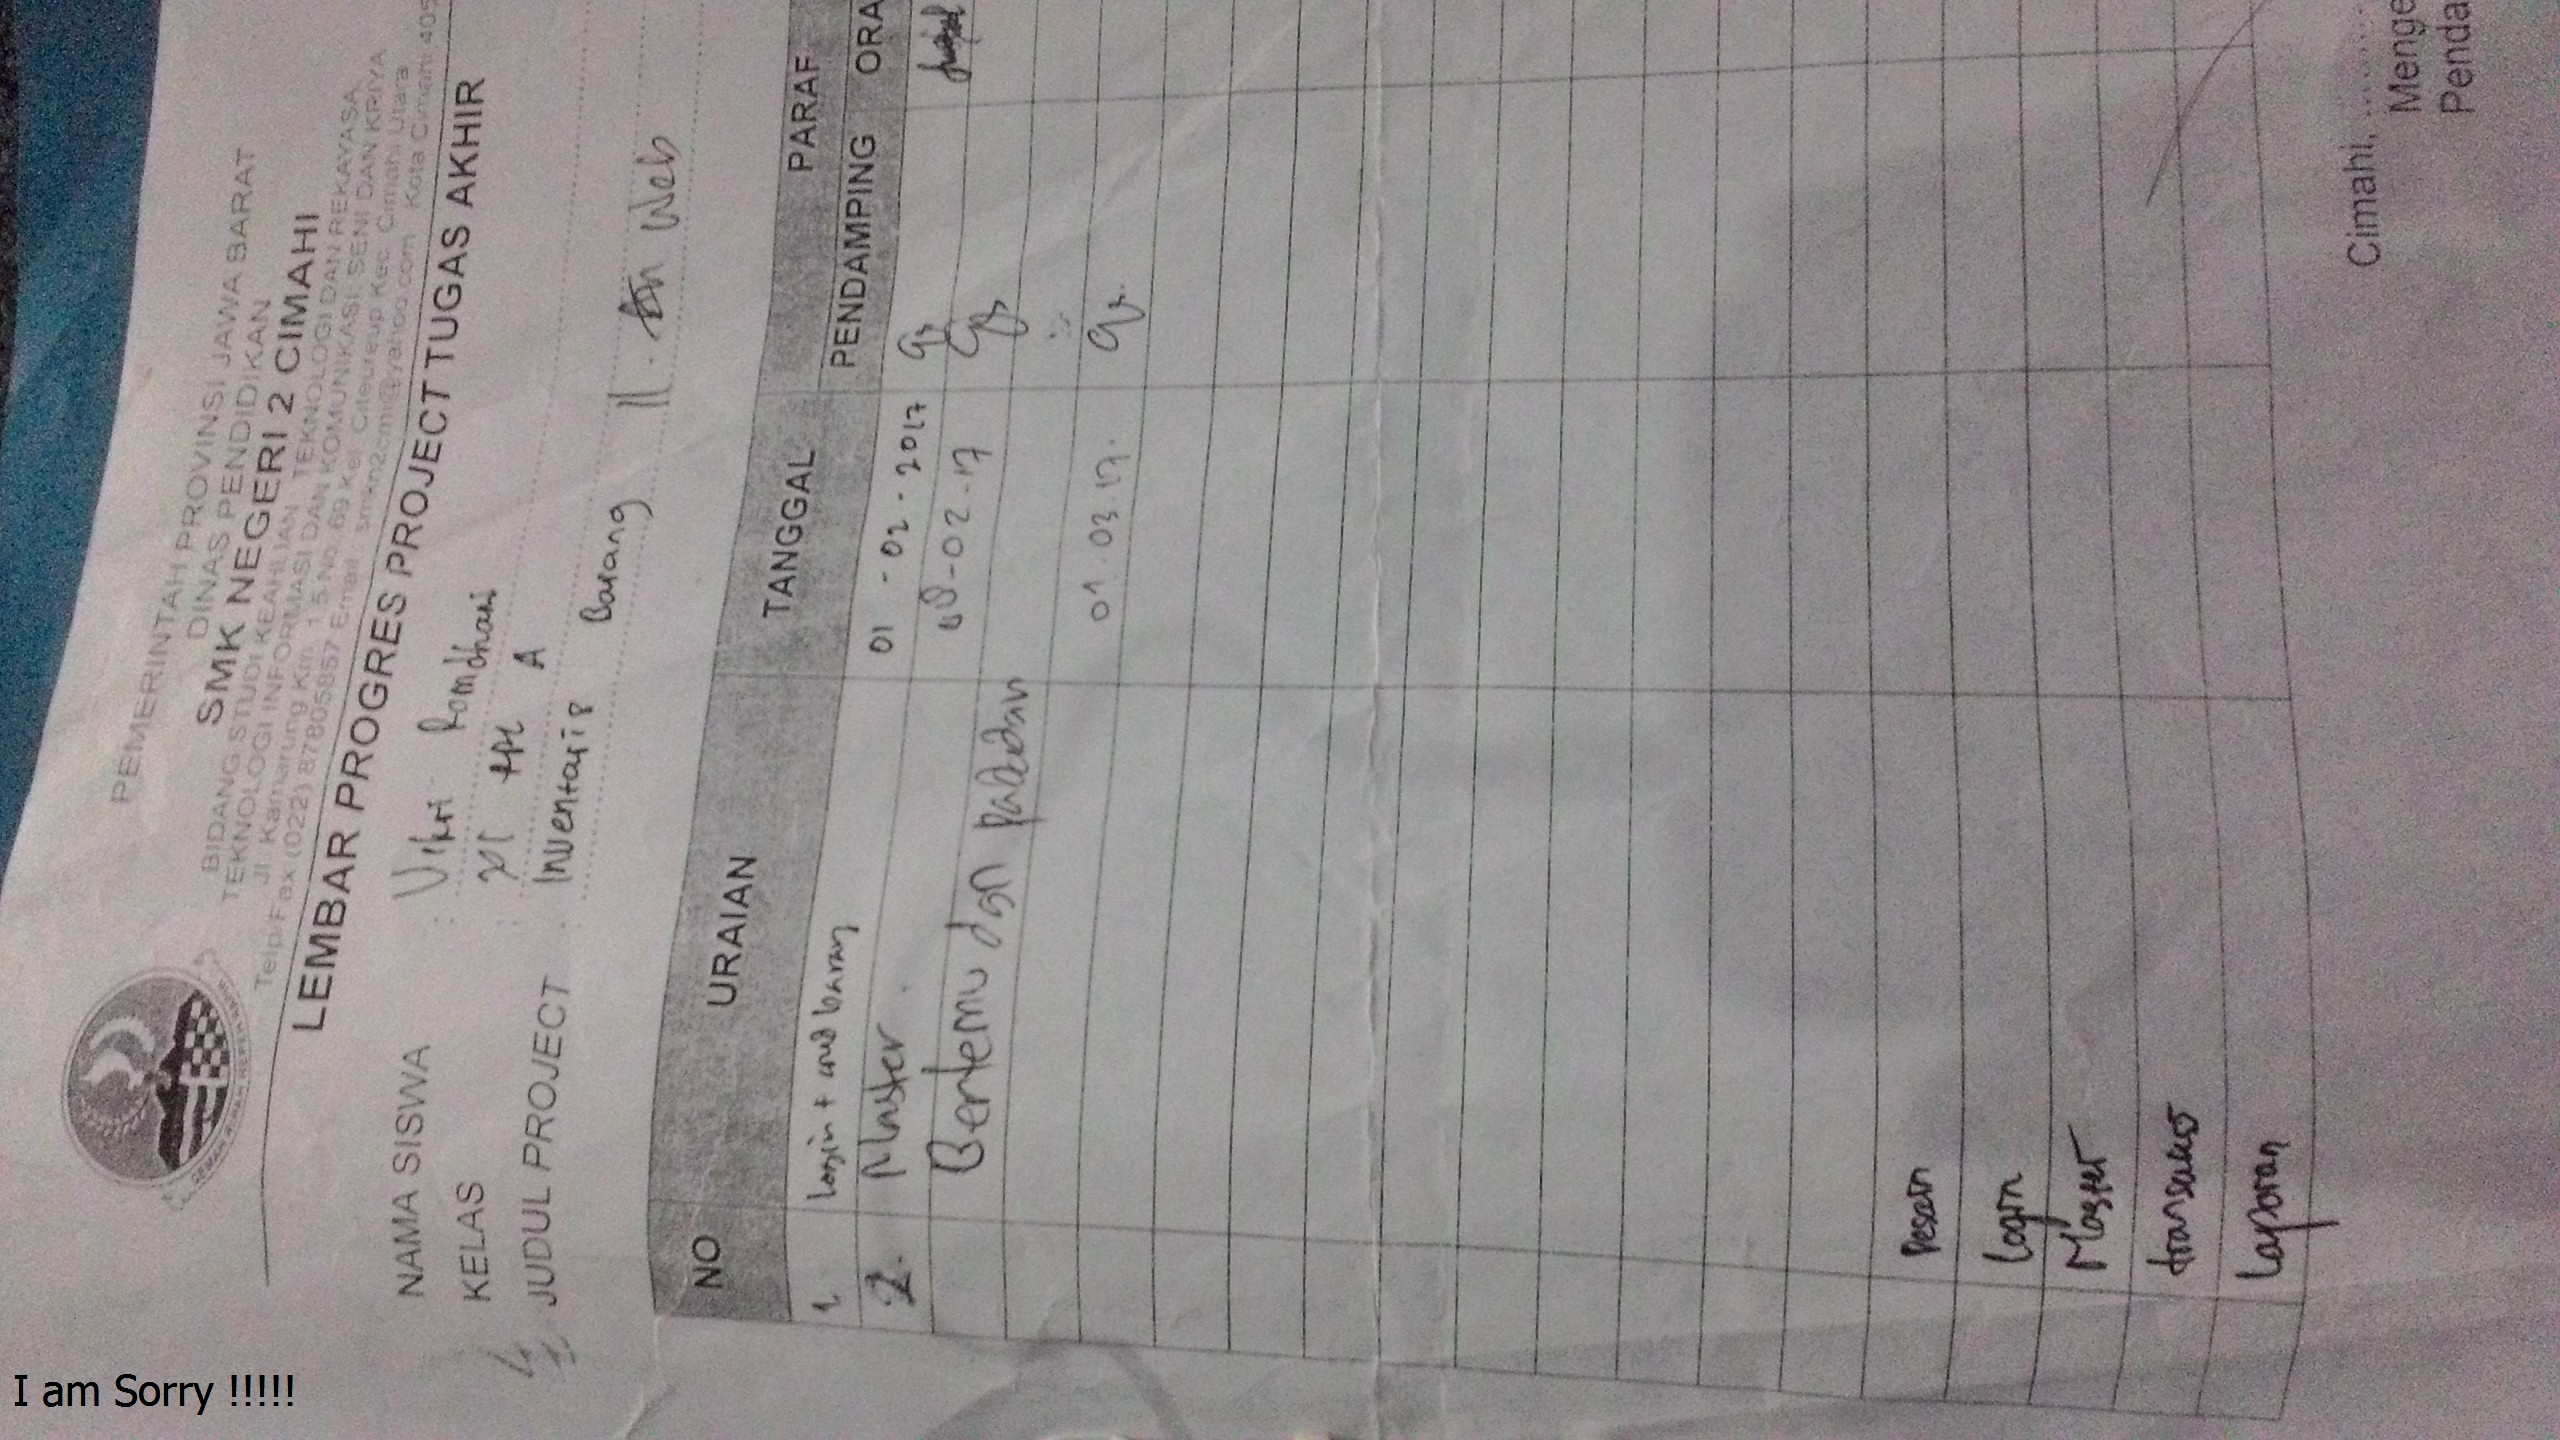 PEMERINTAH PROVINSI JAWA BARAT
DINAS PENDIDIKAN
SMK NEGERI 2 CIMAHI
BIDANG STUDI KEAHLIAN TEKNOLOGI DAN REKAYASA,
TEKNOLOGI INFORMASI DAN KOMUNIKASI, SENI DAN KRIYA
Jl. Kamarung Km. 1,5 No. 69 Kel. Citeureup Kec. Cimahi Utara
Telp/Fax (022) 87805857 Email smkn2cmi@yahoo.com Kota Cimahi 405
LEMBAR PROGRES PROJECT TUGAS AKHIR
NAMA SISWA : Vikri Romdhani
KELAS : XII A
JUDUL PROJECT : Inventaris Barang Web
NO URAIAN TANGGAL PARAF
PENDAMPING ORA
1 Login + barang 01 - 02 - 2017
2. Master. -02-17
Bertemu dgn
01.03.17.
Desain
Login
Master
transaksi
Laporan
Cimahi, ..........
Menge
Penda
I am Sorry !!!!!